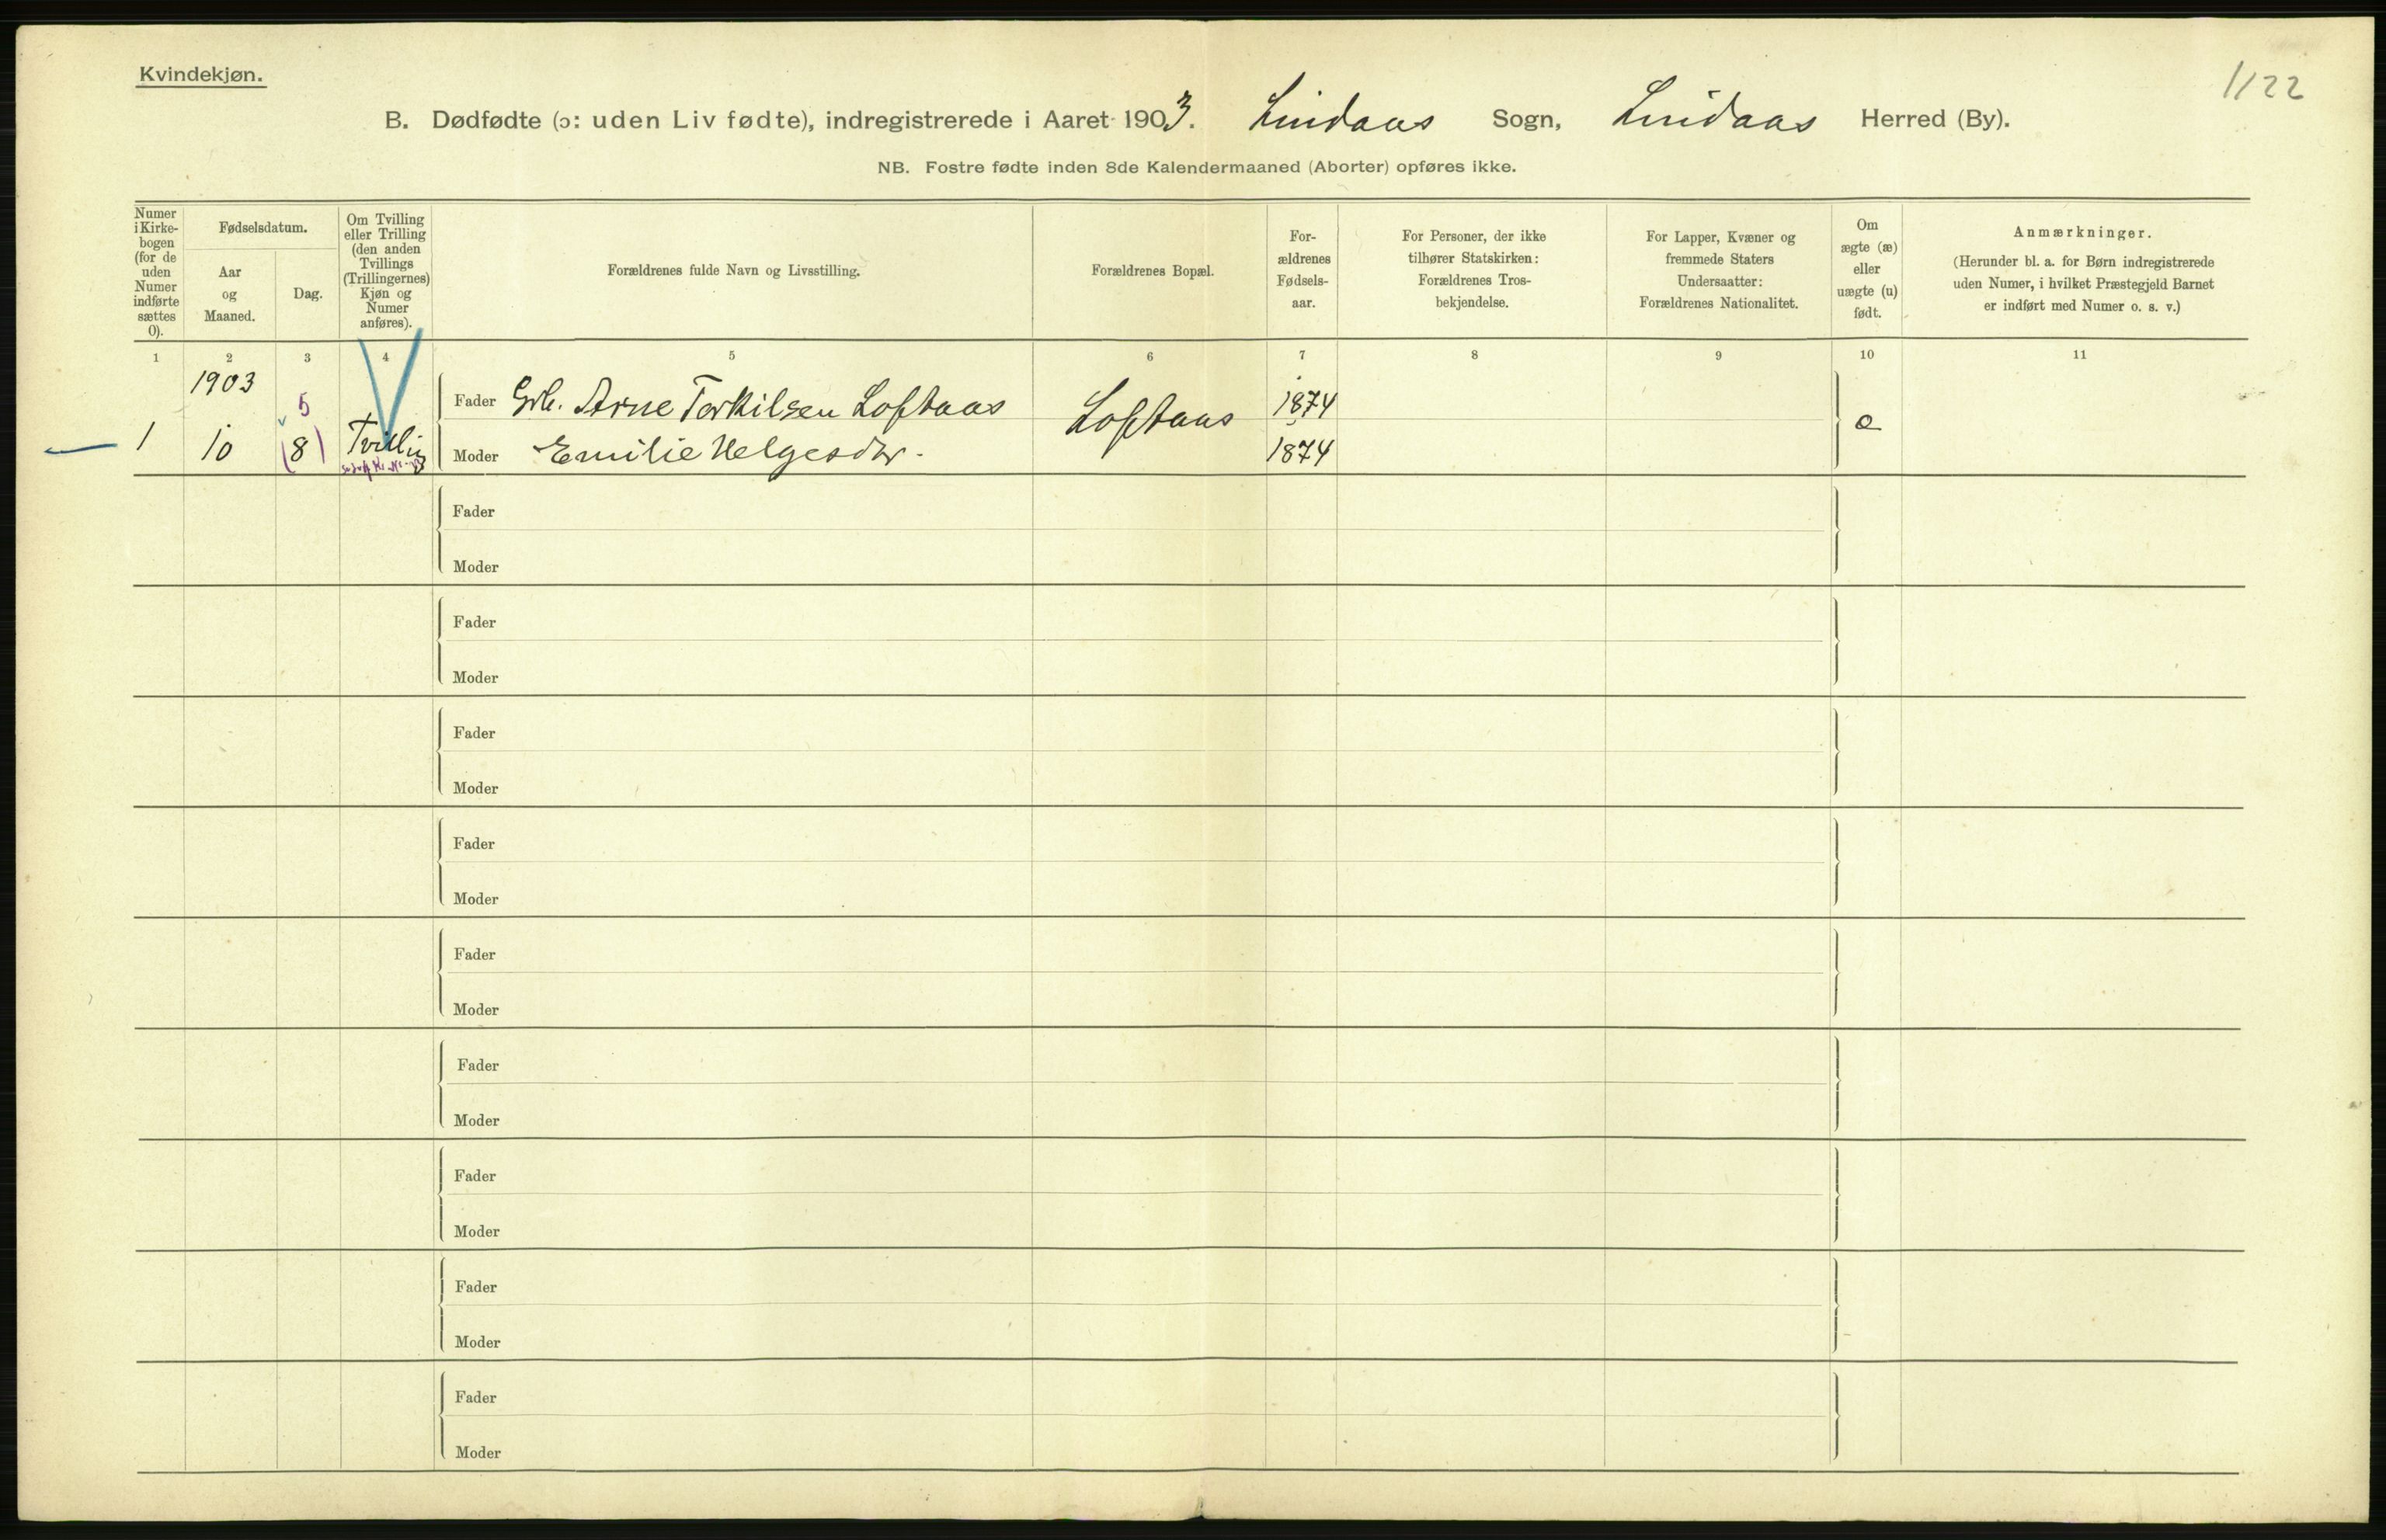 Kvindekjøn.
1122
B. Dødfødte (ɔ: uden Liv fødte), indregistrerede i Aaret 1903. Lindaas Sogn, Lindaas Herred (By).
NB. Fostre fødte inden 8de Kalendermaaned (Aborter) opføres ikke.
Numer
i Kirke-
bogen
(for de
uden
Numer
indførte
sættes
0).
Fødselsdatum.
Aar
og
Maaned.
Dag.
Om Tvilling
eller Trilling
(den anden
Tvillings
(Trillingernes)
Kjøn og
Numer
anføres).
Forældrenes fulde Navn og Livsstilling.
Forældrenes Bopæl.
For-
ældrenes
Fødsels-
aar.
For Personer, der ikke
tilhører Statskirken:
Forældrenes Tros-
bekjendelse.
For Lapper, Kvæner og
fremmede Staters
Undersaatter:
Forældrenes Nationalitet.
Om
ægte (æ)
eller
uægte (u)
født.
Anmærkninger.
(Herunder bl. a. for Børn indregistrerede
uden Numer, i hvilket Præstegjeld Barnet
er indført med Numer o. s. v.)
1 2 3 4 5 6 7 8 9 10 11
1903
5
Fader Grb. Arne Torkilsen Loftaas Loftaas 1874
æ
1 10 (8) Tvilling Moder Emilie Helgesdtr. 1874
Fader
Moder
Fader
Moder
Fader
Moder
Fader
Moder
Fader
Moder
Fader
Moder
Fader
Moder
Fader
Moder
Fader
Moder